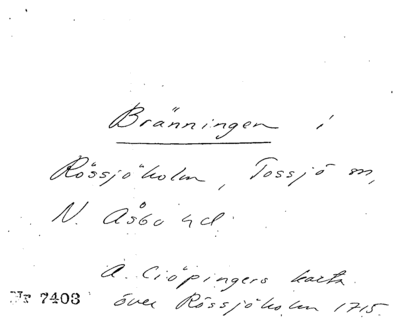 Bränningen i
Rössjöholm, Tossjö sn,
N. Åsbo hd.
A. Ciöpingers karta
över Rössjöholm 1715.
Nr 7403